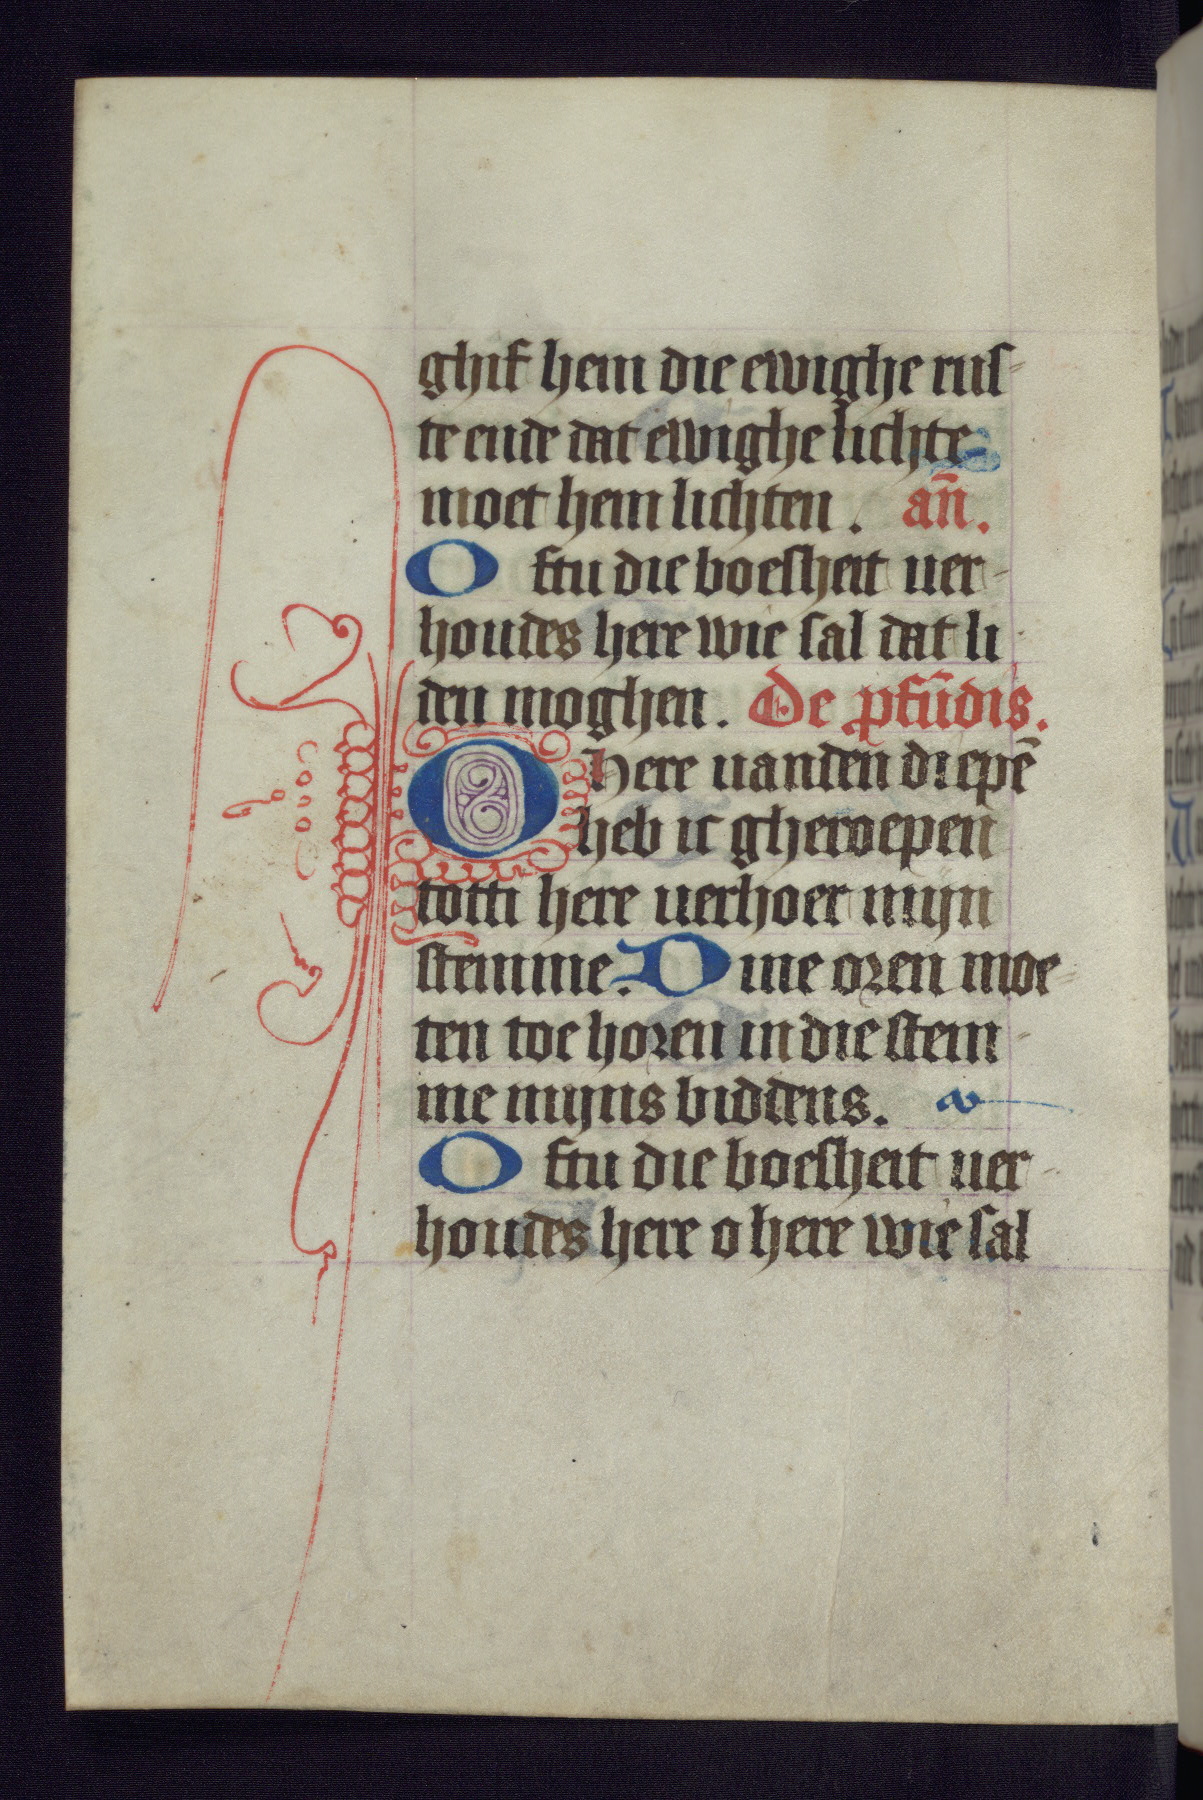 ghif hem die ewighe rus-
te ende dat ewighe lichte
moet hem lichten. añ.
Oftu die boesheit uer-
houdes here wie sal dat li
den moghen. De ꝓfūdis.
O here uanden diepē
heb ic gheroepen
totti here uerhoer mijn
stemme. Dine oren moe-
ten toe horen in die stem-
me mijns biddens. a
Oftu die boesheit uer-
houdes here o here wie sal